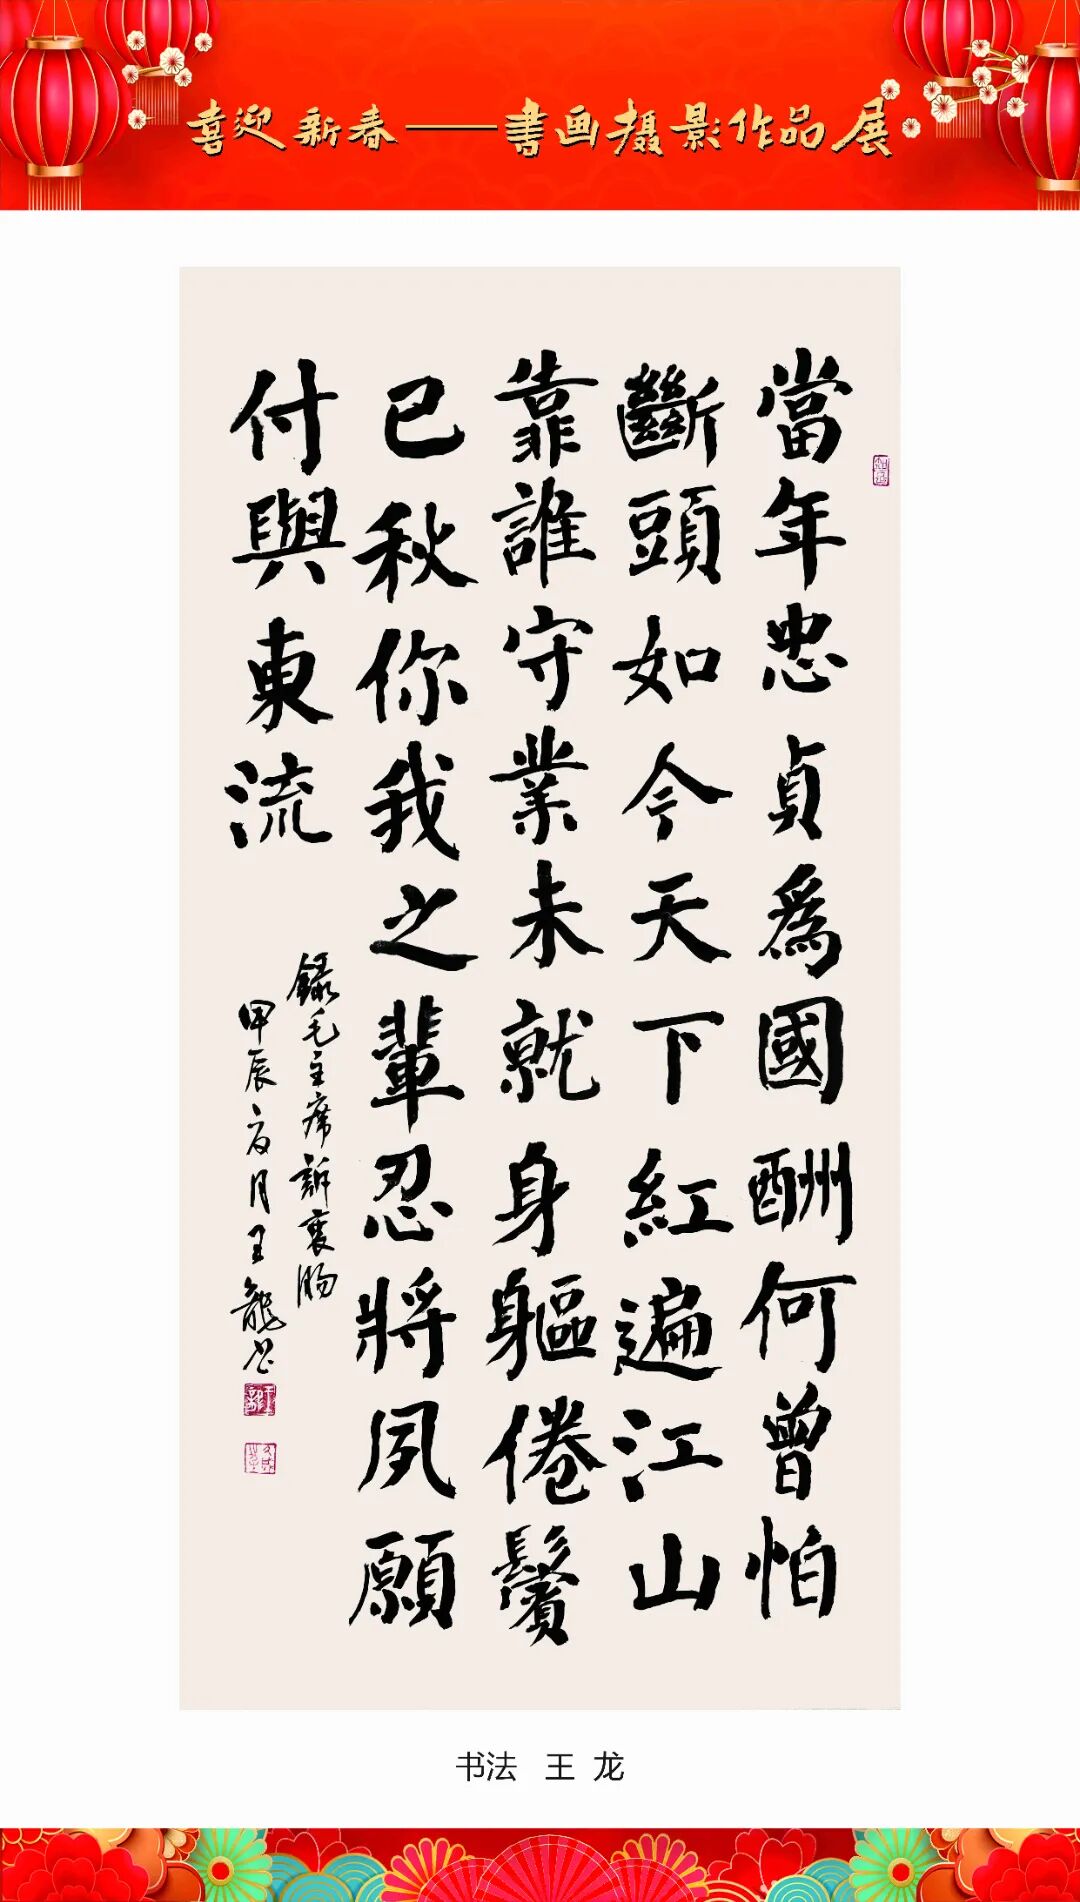 喜迎新春——書画摄影作品展
當年忠貞爲國酬何曾怕
斷頭如今天下紅遍江山
靠誰守業未就身軀倦鬢
已秋你我之輩忍將夙願
付與東流
錄毛主席訴衷肠
甲辰之月王龍书
书法 王龙